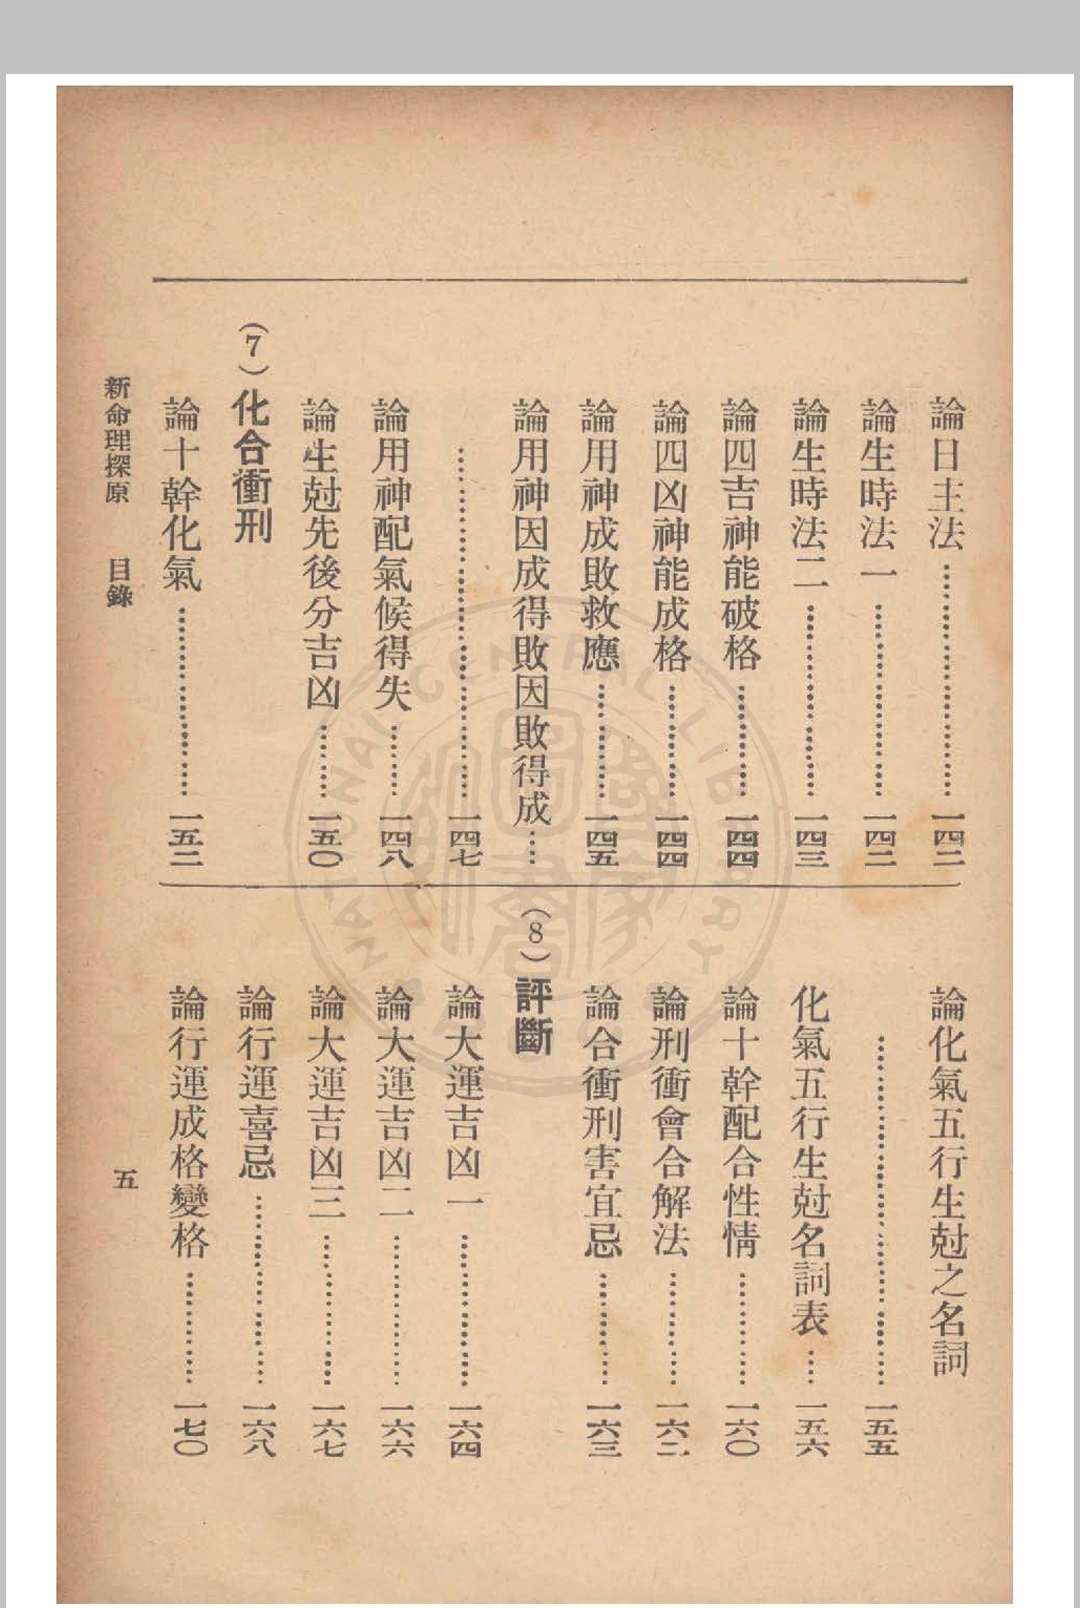 論日主法……………一四二
論生時法一…………一四二
論生時法二…………一四三
論四吉神能破格……一四四
論四凶神能成格……一四四
論用神成敗救應……一四五
論用神因成得敗因敗得成……
……………………一四七
論用神配氣候得失……一四八
論生尅先後分吉凶……一五〇
(7)化合衝刑
論十幹化氣…………一五二
論化氣五行生尅之名詞
……………………一五五
化氣五行生尅名詞表……一五六
論十幹配合性情………一六〇
論刑衝會合解法………一六二
論合衝刑害宜忌………一六三
(8)評斷
論大運吉凶一…………一六四
論大運吉凶二…………一六六
論大運吉凶三…………一六七
論行運喜忌……………一六八
論行運成格變格………一七〇
新命理探原 目錄
五
NATIONAL CENTRAL LIBRARY